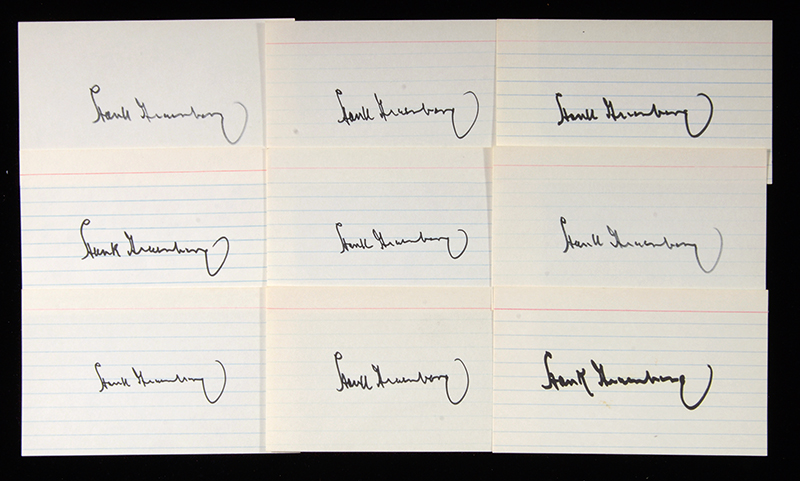 Hank Greenberg
Hank Greenberg
Hank Greenberg
Hank Greenberg
Hank Greenberg
Hank Greenberg
Hank Greenberg
Hank Greenberg
Hank Greenberg